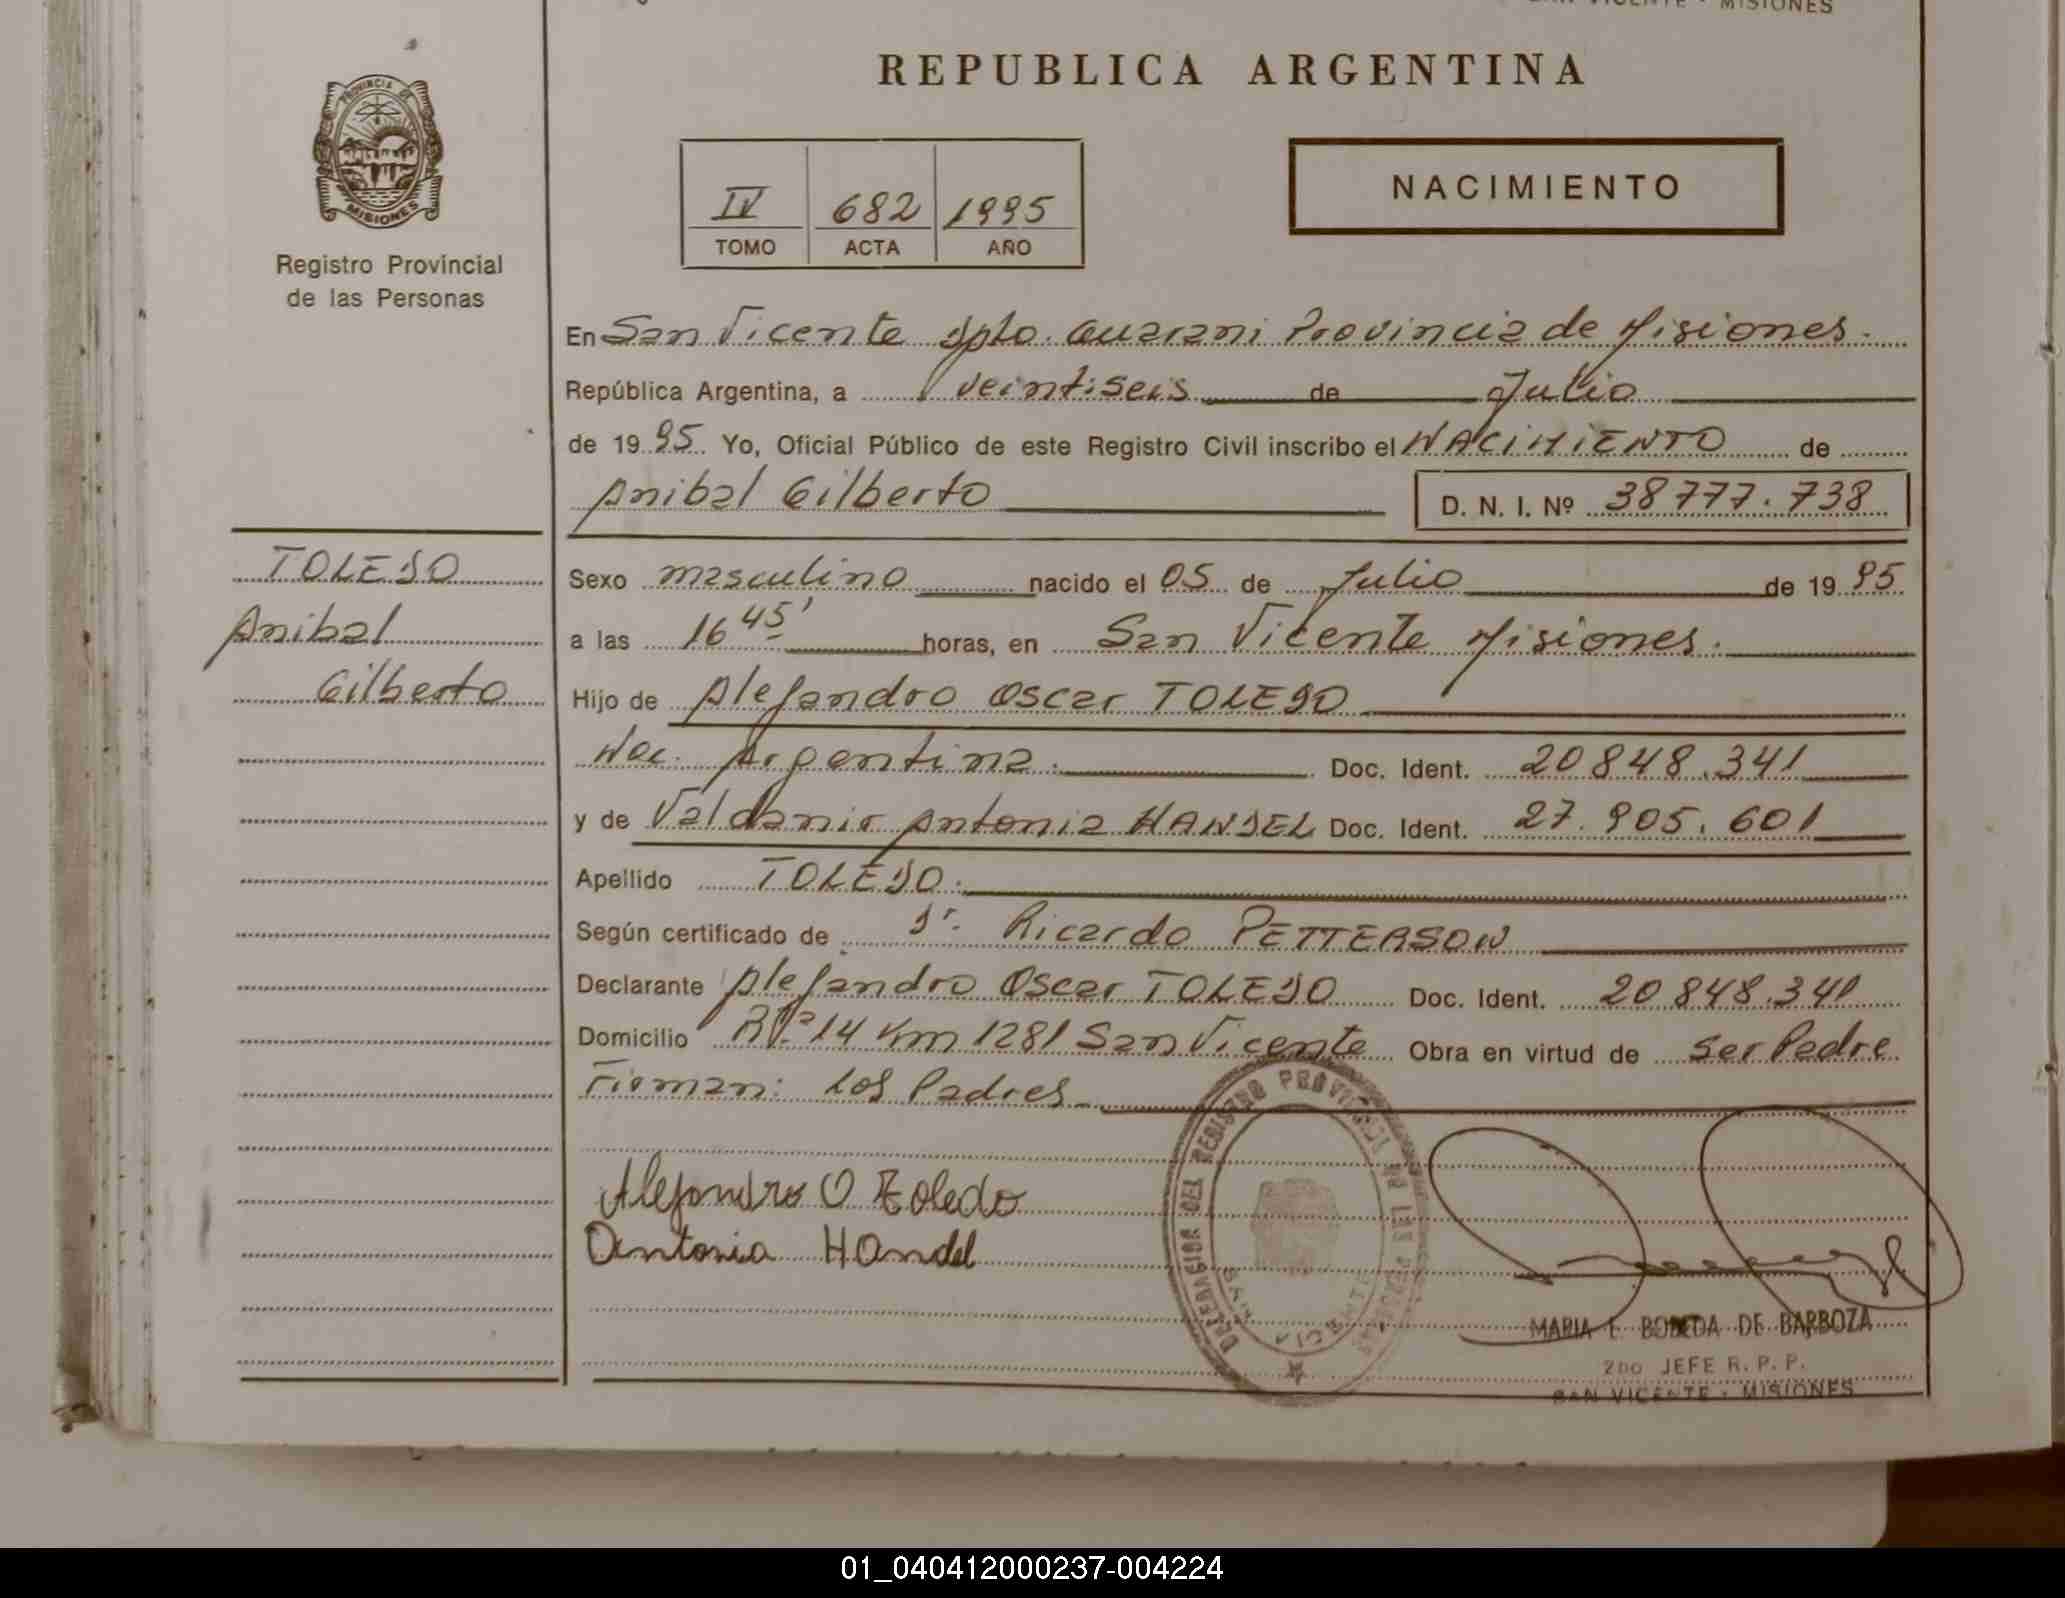 VICENTE - MISIONES
REPUBLICA ARGENTINA
PROVINCIA DE
MISIONES
Registro Provincial
de las Personas
IV 682 1995
TOMO ACTA AÑO
NACIMIENTO
En San Vicente Dpto. Guarani Provincia de Misiones.
República Argentina, a veintiseis de Julio
de 19 95. Yo, Oficial Público de este Registro Civil inscribo el NACIMIENTO de
Anibal Gilberto D. N. I. Nº 38777.738
TOLEDO
Anibal
Gilberto
Sexo masculino nacido el 05 de Julio de 19 95
a las 16 45' horas, en San Vicente Misiones.
Hijo de Alejandro Oscar TOLEDO
Nac. Argentina. Doc. Ident. 20848.341
y de Valdamir Antonia HANDEL Doc. Ident. 27.905.601
Apellido TOLEDO.
Según certificado de Dr. Ricardo PETTERSON
Declarante Alejandro Oscar TOLEDO Doc. Ident. 20848.341
Domicilio Rta 14 Km 1281 San Vicente Obra en virtud de ser Padre
Firman: los Padres
Alejandro O Toledo
Antonia Handel
DELEGACION DEL REGISTRO PROVINCIAL DE LAS PERSONAS
MARIA E. DE BARBOZA
2DO JEFE R. P. P.
SAN VICENTE - MISIONES
01_040412000237-004224